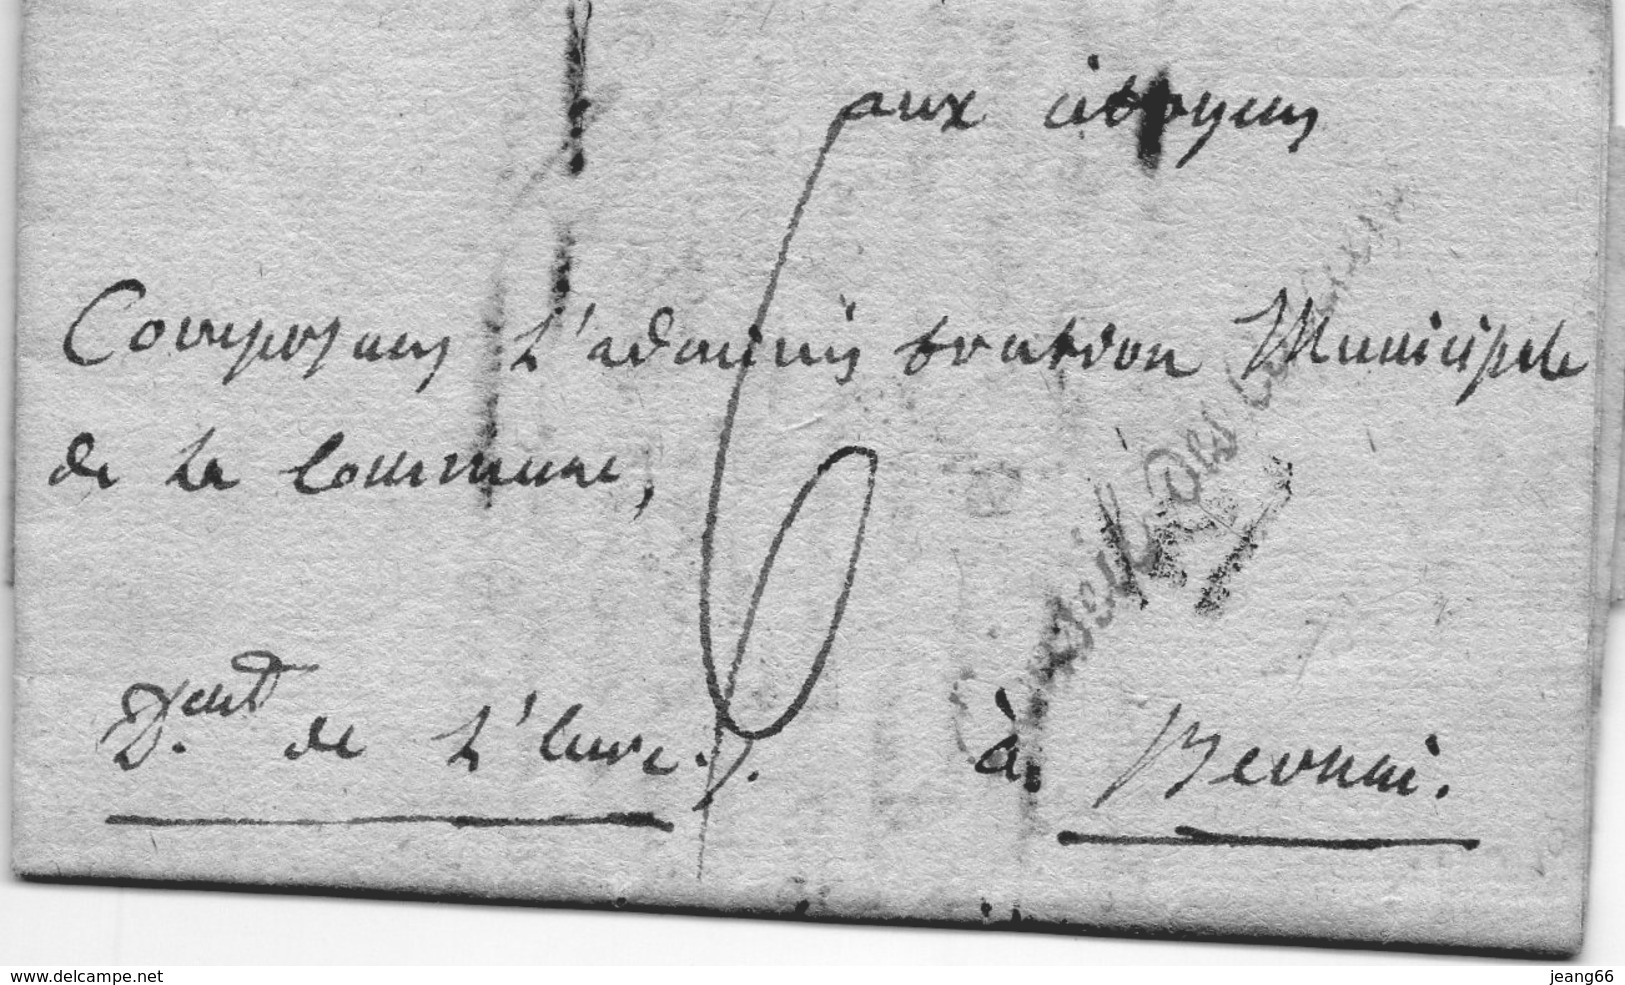 aux citoyens
Composans L'adminis tration Municipale
de La Commune,
D.ent de L'eure./.
à Bernai.
Conseil des
P
6
www.delcampe.net
jeang66